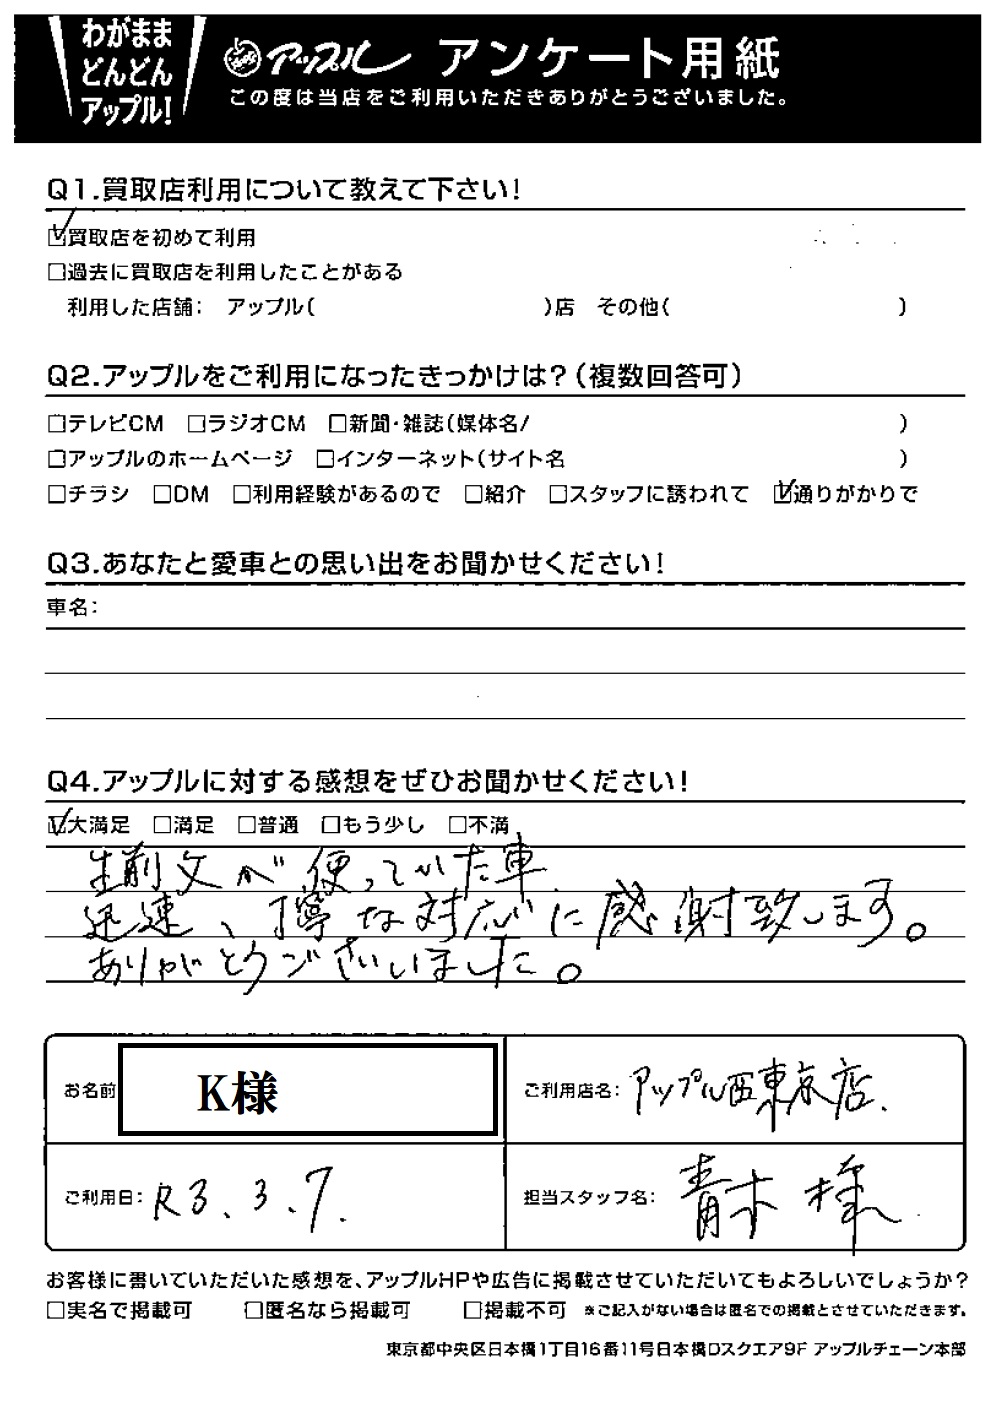 わがまま
どんどん
アップル!
アップル アンケート用紙
この度は当店をご利用いただきありがとうございました。
Q1.買取店利用について教えて下さい!
☑買取店を初めて利用
□過去に買取店を利用したことがある
利用した店舗: アップル( )店 その他( )
Q2.アップルをご利用になったきっかけは?(複数回答可)
□テレビCM □ラジオCM □新聞・雑誌(媒体名/ )
□アップルのホームページ □インターネット(サイト名 )
□チラシ □DM □利用経験があるので □紹介 □スタッフに誘われて ☑通りがかりで
Q3.あなたと愛車との思い出をお聞かせください!
車名:
Q4.アップルに対する感想をぜひお聞かせください!
☑大満足 □満足 □普通 □もう少し □不満
生前父が使っていた車
迅速、丁寧な対応に感謝致します。
ありがとうございました。
お名前 K様
ご利用店名: アップル西東京店.
ご利用日: R3.3.7.
担当スタッフ名: 青木様
お客様に書いていただいた感想を、アップルHPや広告に掲載させていただいてもよろしいでしょうか?
□実名で掲載可 □匿名なら掲載可 □掲載不可 ※ご記入がない場合は匿名での掲載とさせていただきます。
東京都中央区日本橋1丁目16番11号日本橋Dスクエア9F アップルチェーン本部